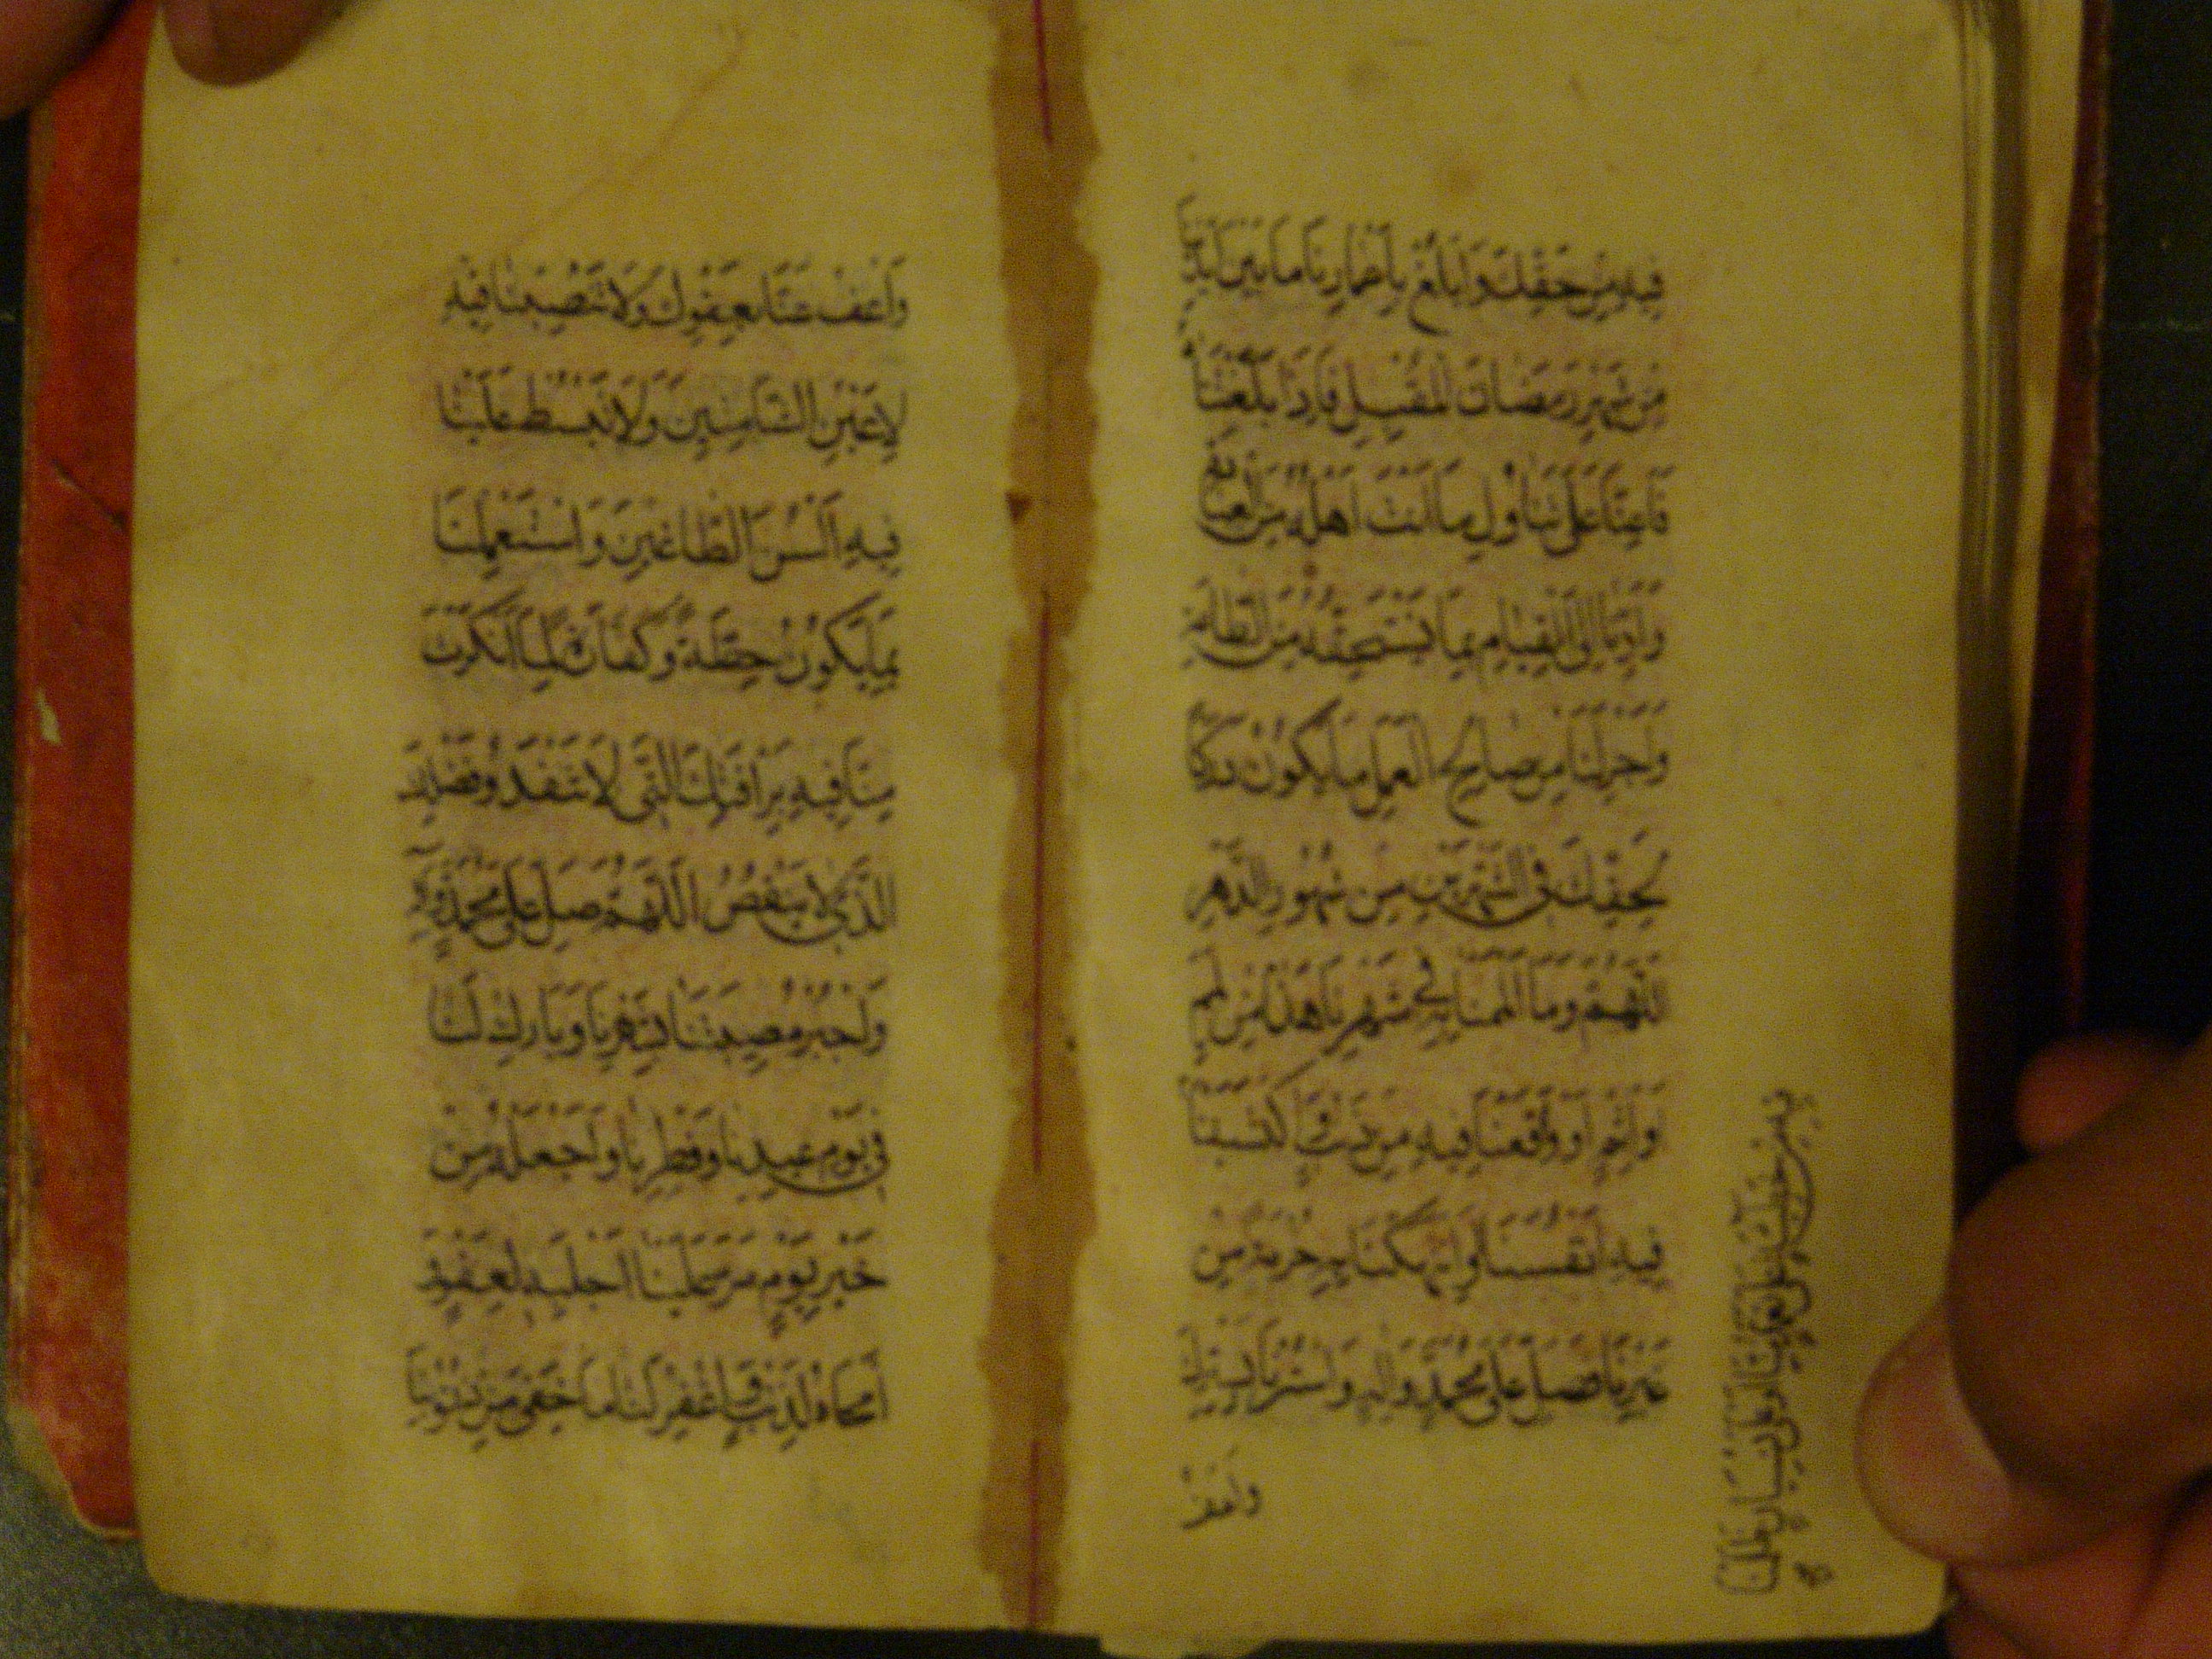 فِيهِ مِنْ حَقِّكَ وَابْلُغْ بِأَعْمَارِنَا مَا بَيْنَ أَيْدِينَا
مِنْ شَهْرِ رَمَضَانَ الْمُقْبِلِ فَإِذَا بَلَّغْتَنَاهُ
فَأَعِنَّا عَلَى تَنَاوُلِ مَا أَنْتَ أَهْلُهُ مِنَ الْعِبَادَةِ
وَأَدِّنَا إِلَى الْقِيَامِ بِمَا يَسْتَحِقُّهُ مِنَ الطَّاعَةِ
وَأَجْرِ لَنَا مِنْ صَالِحِ الْعَمَلِ مَا يَكُونُ دَرَكًا
لِحَقِّكَ فِي الشَّهْرَيْنِ مِنْ شُهُورِ الدَّهْرِ
اللَّهُمَّ وَمَا أَلْمَمْنَا بِهِ فِي شَهْرِنَا هَذَا مِنْ لَمَمٍ
وَإِثْمٍ أَوْ وَاقَعْنَا فِيهِ مِنْ ذَنْبٍ وَاكْتَسَبْنَا
فِيهِ أَنْفُسَنَا أَوِ انْتَهَكْنَا بِهِ حُرْمَةً مِنْ
غَيْرِنَا فَصَلِّ عَلَى مُحَمَّدٍ وَآلِهِ وَاسْتُرْنَا بِسِتْرِكَ
وَاعْفُ
وَاعْفُ عَنَّا بِعَفْوِكَ وَلَا تَنْصِبْنَا فِيهِ
لِأَعْيُنِ الشَّامِتِينَ وَلَا تَبْسُطْ عَلَيْنَا
فِيهِ أَلْسُنَ الطَّاغِينَ وَاسْتَعْمِلْنَا
بِمَا يَكُونُ حِطَّةً وَكَفَّارَةً لِمَا أَنْكَرْتَ
مِنَّا فِيهِ بِرَأْفَتِكَ الَّتِي لَا تَنْفَدُ وَفَضْلِكَ
الَّذِي لَا يَنْقُصُ اللَّهُمَّ صَلِّ عَلَى مُحَمَّدٍ وَآلِهِ
وَاجْبُرْ مُصِيبَتَنَا بِشَهْرِنَا وَبَارِكْ لَنَا
فِي يَوْمِ عِيدِنَا وَفِطْرِنَا وَاجْعَلْهُ مِنْ
خَيْرِ يَوْمٍ مَرَّ عَلَيْنَا أَجْلَبِهِ لِعَفْوٍ
أَمْحَاهُ لِذَنْبٍ وَاغْفِرْ لَنَا مَا خَفِيَ مِنْ ذُنُوبِنَا